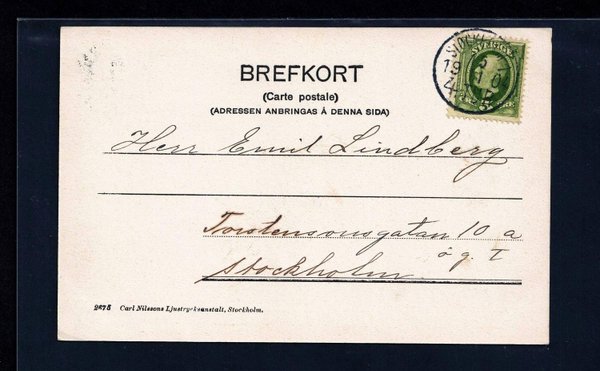 BREFKORT
(Carte postale)
(ADRESSEN ANBRINGAS Å DENNA SIDA)
SVERIGE
Herr Emil Lindberg
Torstensonsgatan 10 a
ö g. I
Stockholm.
2675 Carl Nilssons Ljustrycksanstalt, Stockholm.